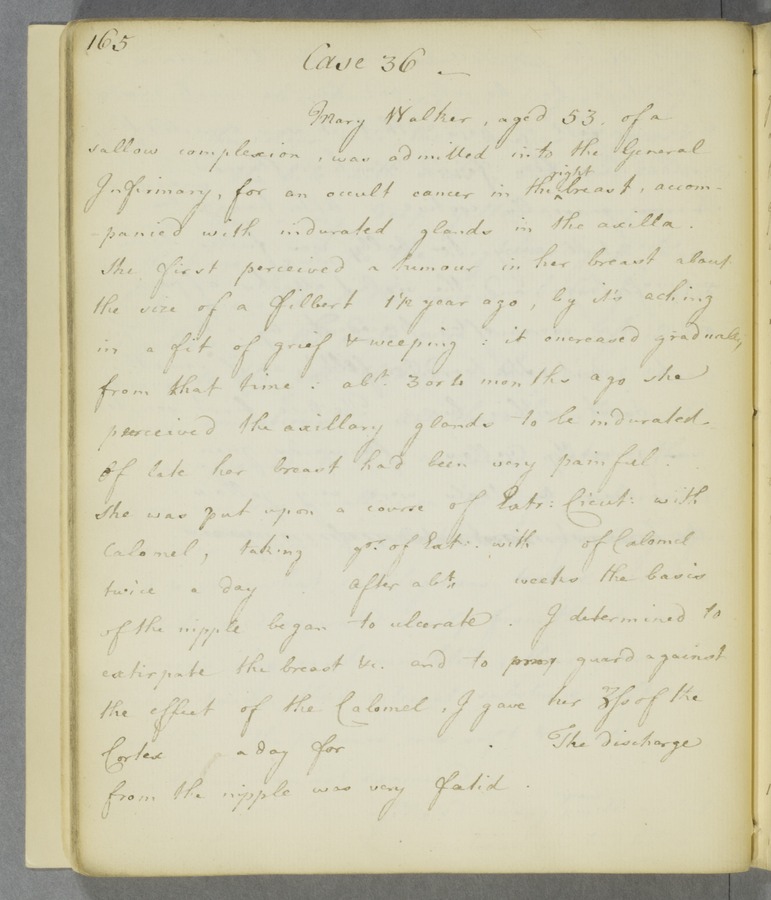 165
Case 36 _
Mary Walker, aged 53. of a
sallow complexion, was admitted into the General
right
Infirmary, for an occult cancer in the ^ breast, accom-
-panied with indurated glands in the axilla.
She first perceived a tumour in her breast about
the size of a filbert 1½ year ago, by it's aching
in a fit of grief & weeping: it encreased gradually,
from that time: abt. 3 or 4 months ago she
perceived the axillary glands to be indurated.
Of late her breast had been very painful.
She was put upon a course of Extr: Cicut: with
Calomel, taking grs. of Ext: with of Calomel
twice a day . After abt. weeks the basis
of the nipple began to ulcerate. I determined to
extirpate the breast &c. and to guard against
the effect of the Calomel, I gave her ʒſs of the
Cortex a day for . The discharge
from the nipple was very fœtid.